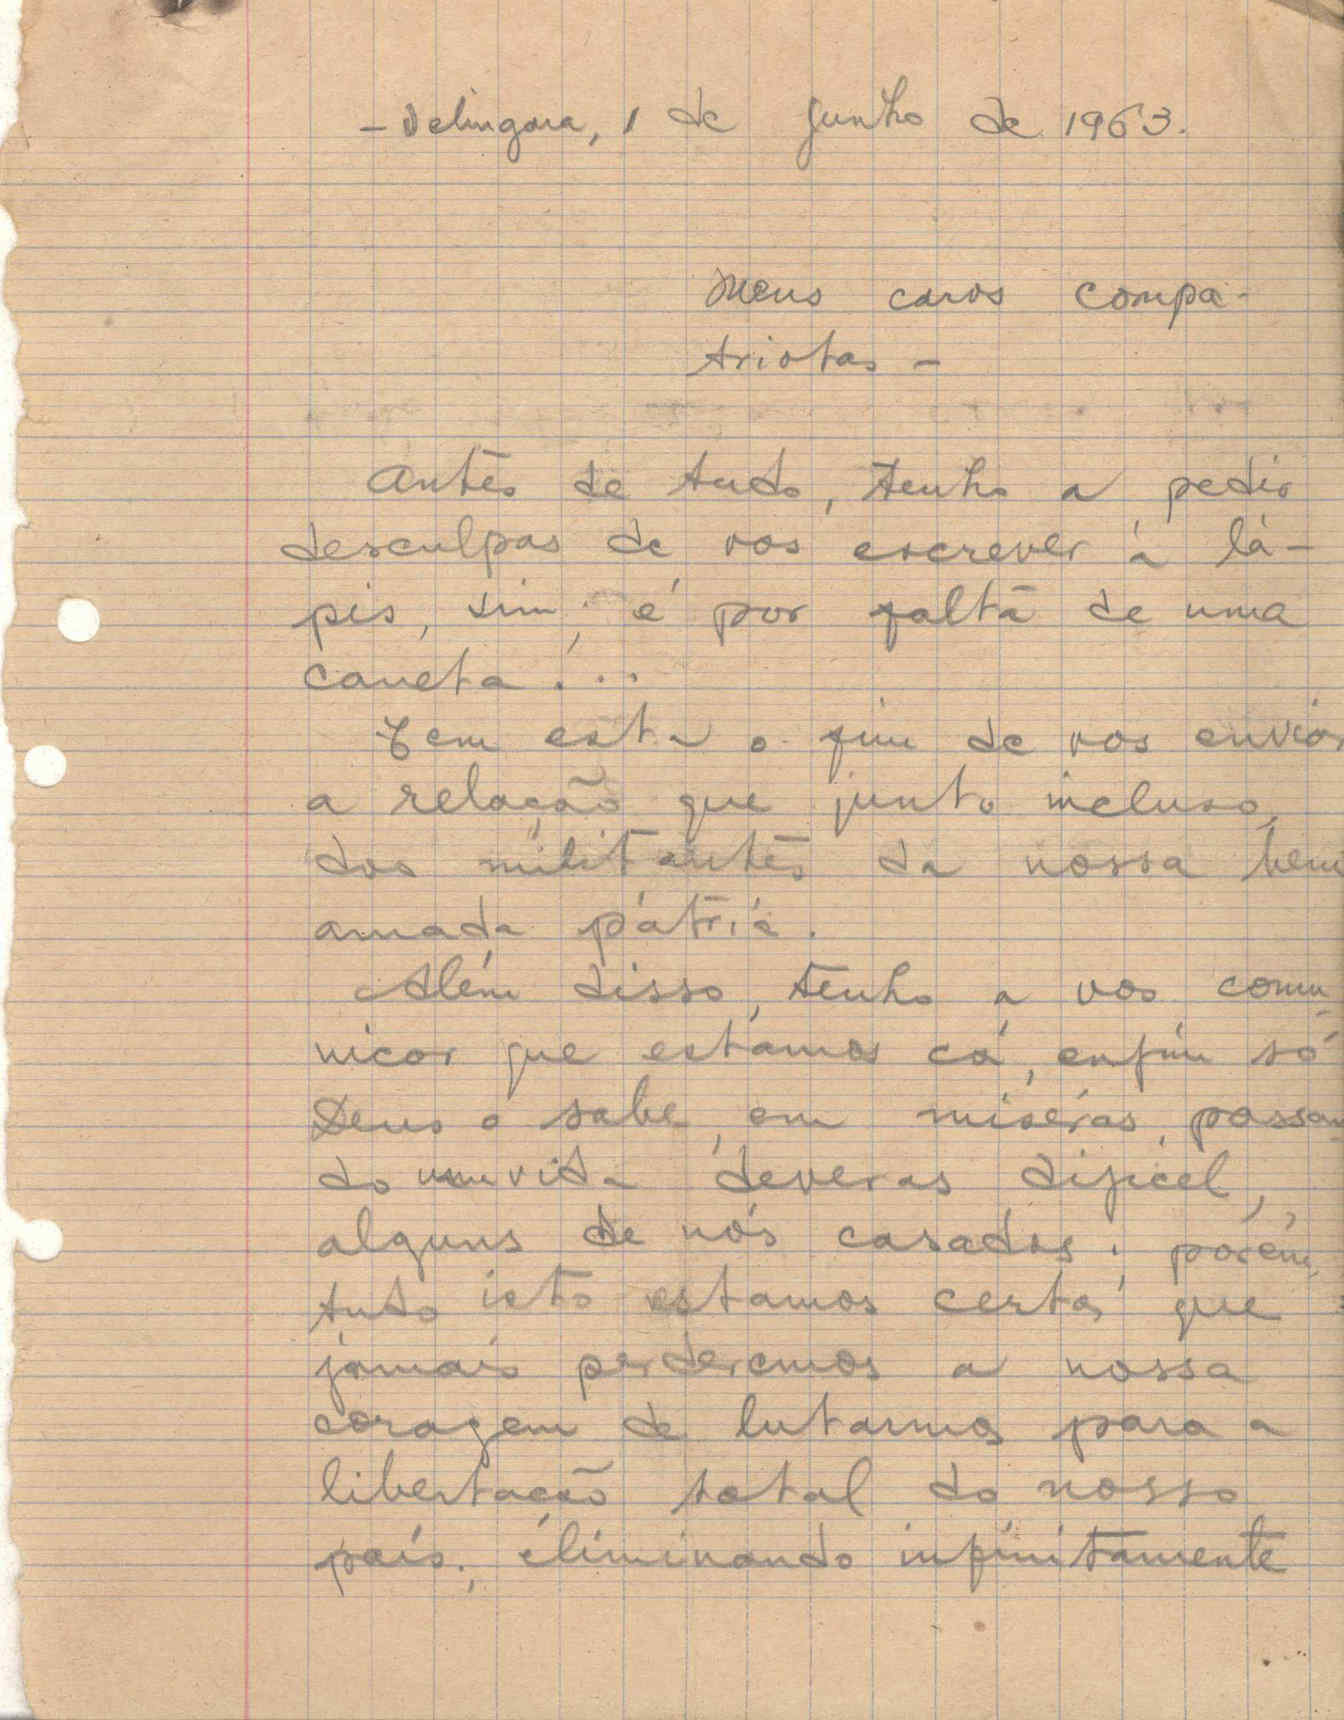 - Velingara, 1 de Junho de 1963.
Meus caros compa-
triotas -
Antes de tudo, tenho a pedir
desculpas de vos escrever à lá-
pis, sim, é por falta de uma
caneta...
Tem esta o fim de vos enviar
a relação que junto incluso,
dos militantes da nossa bem
amada pátria.
Além disso, tenho a vos comu-
nicar que estamos cá, enfim só
Deus o sabe, em misérias, passan
do uma vida deveras dificel,
alguns de nós casados; porém,
tudo isto estamos certos que
jamais perderemos a nossa
coragem de lutarmos para a
libertação total do nosso
país, éliminando infinitamente